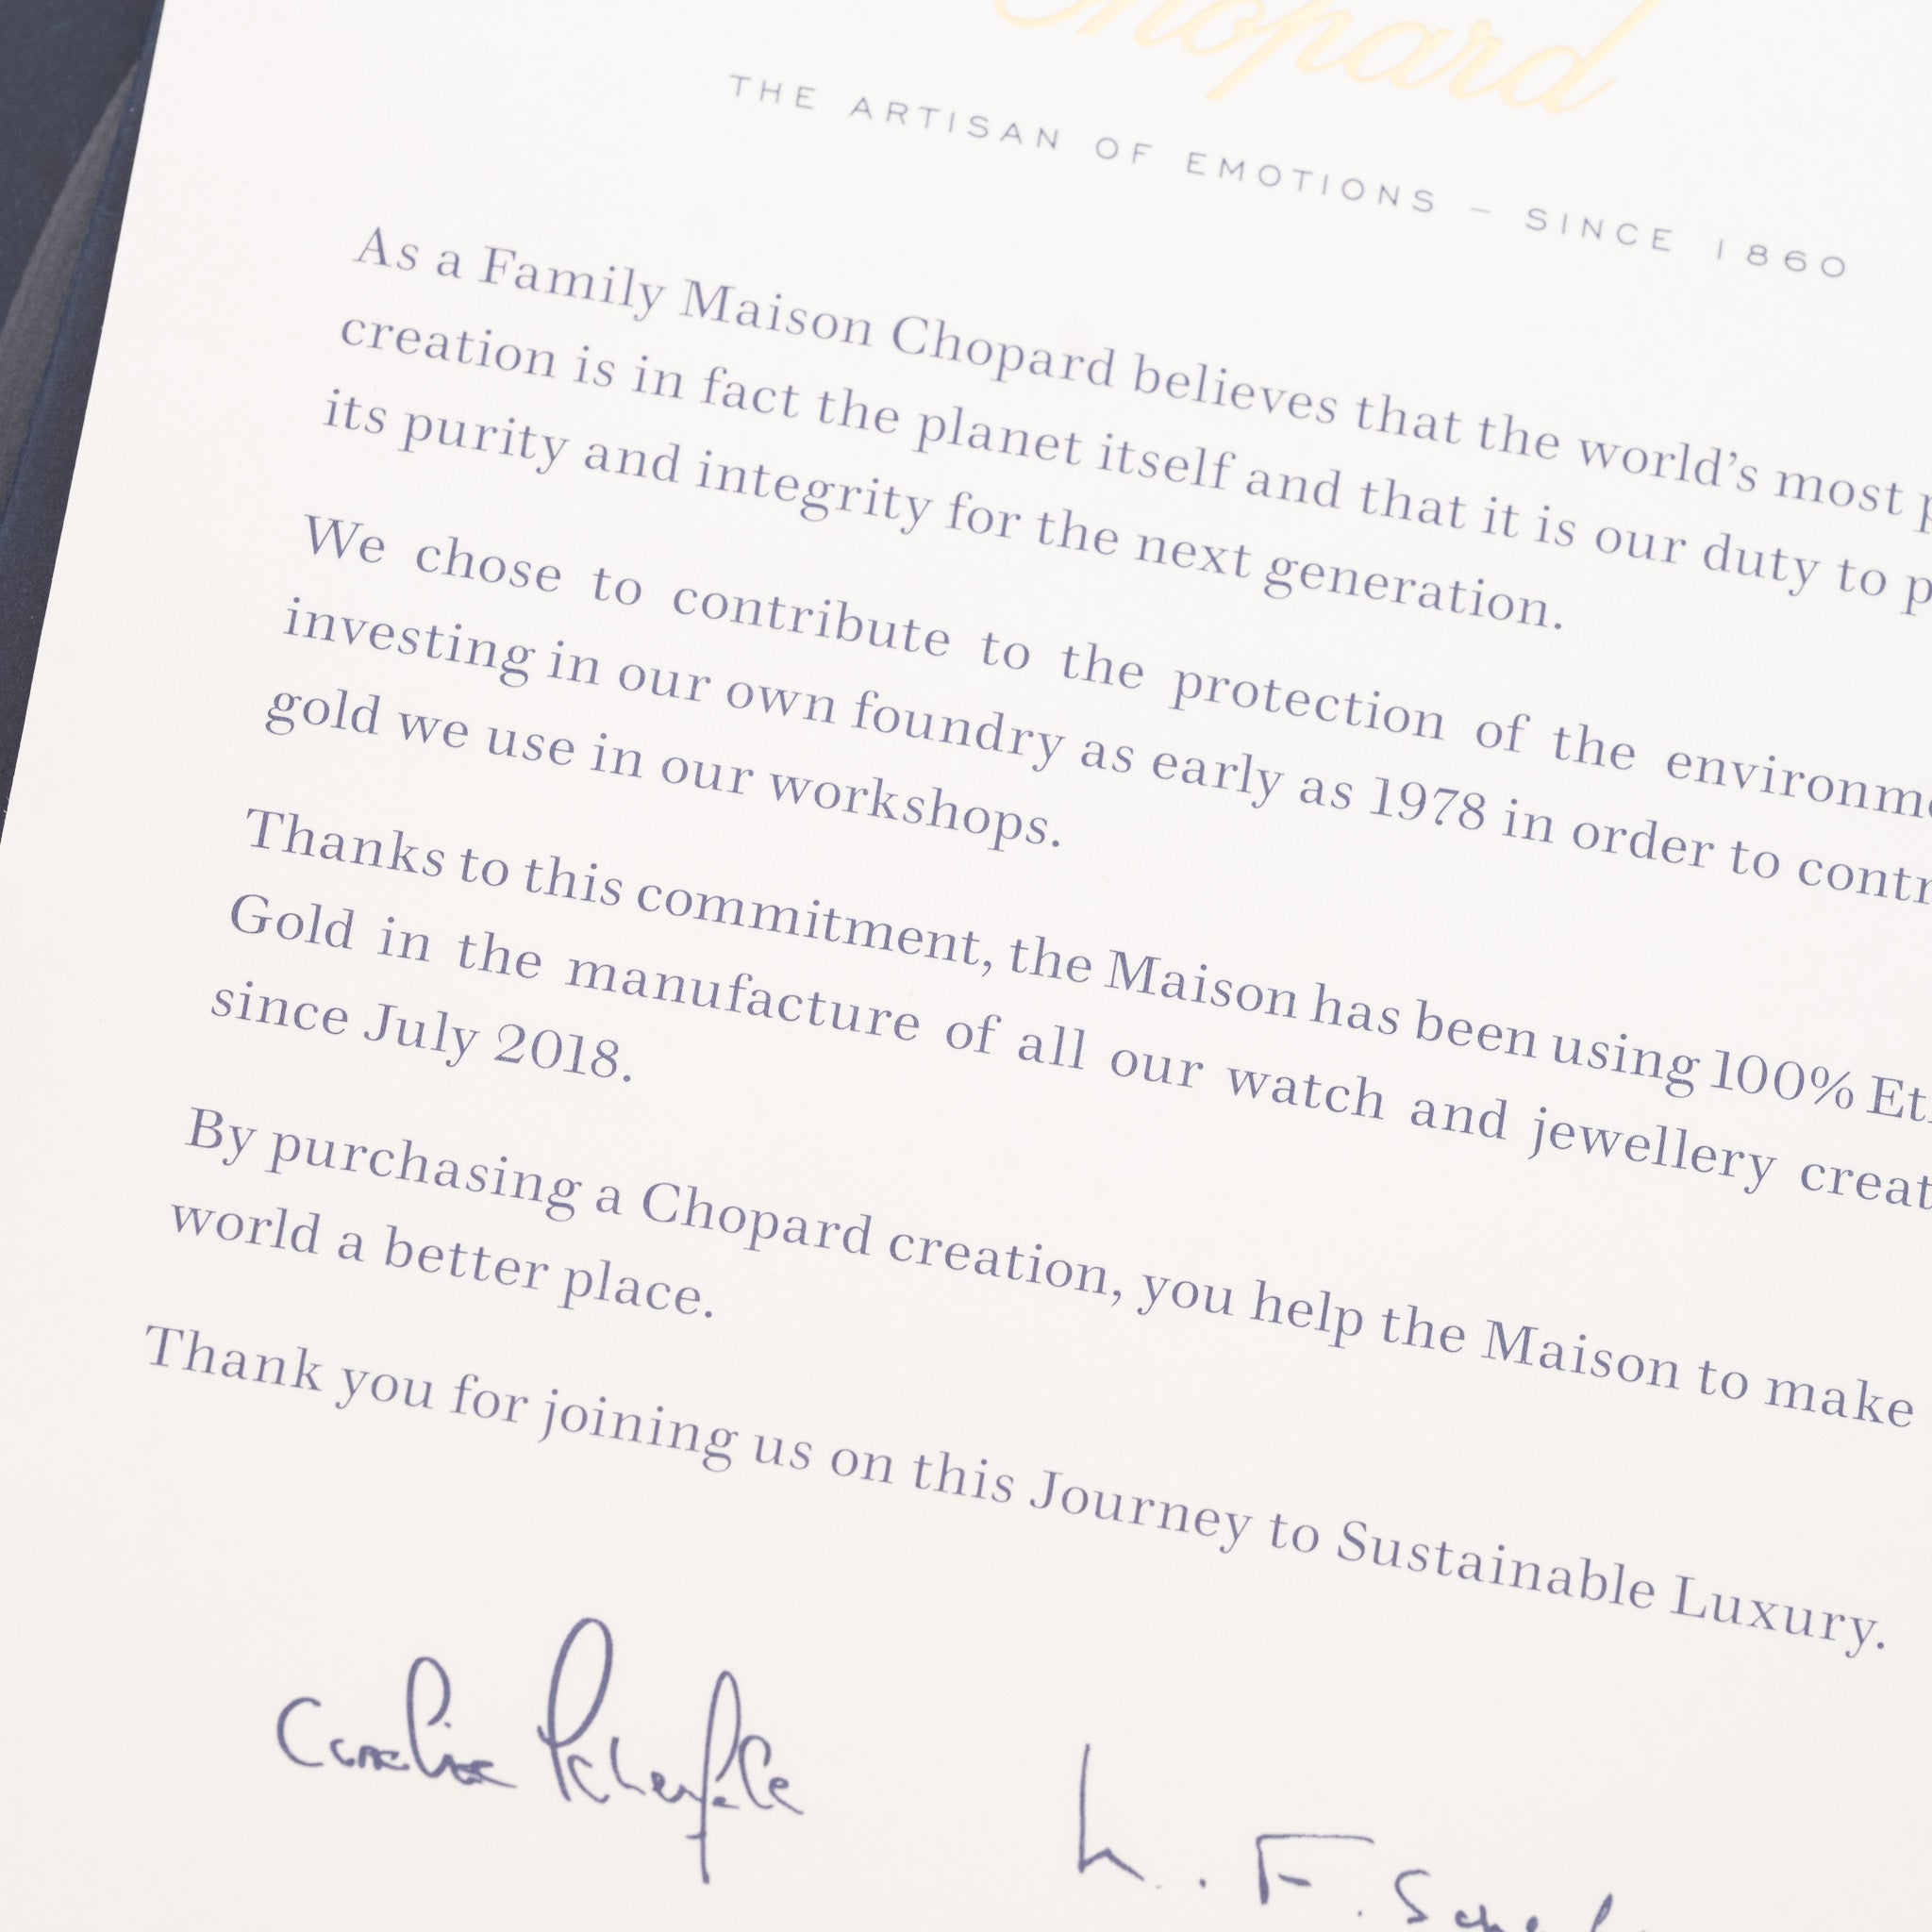 Chopard
THE ARTISAN OF EMOTIONS – SINCE 1860
As a Family Maison Chopard believes that the world’s most
creation is in fact the planet itself and that it is our duty to
its purity and integrity for the next generation.
We chose to contribute to the protection of the
investing in our own foundry as early as 1978 in order to
gold we use in our workshops.
Thanks to this commitment, the Maison has been using 100%
Gold in the manufacture of all our watch and jewellery
since July 2018.
By purchasing a Chopard creation, you help the Maison to make
world a better place.
Thank you for joining us on this Journey to Sustainable Luxury.